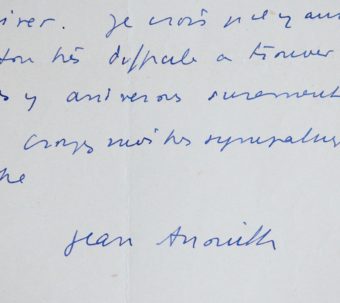 iver. Je crois qu'il y aura
ton très difficile a trouver
s y arriverons surement
Croyez moi très sympathi
Jean Anouilh